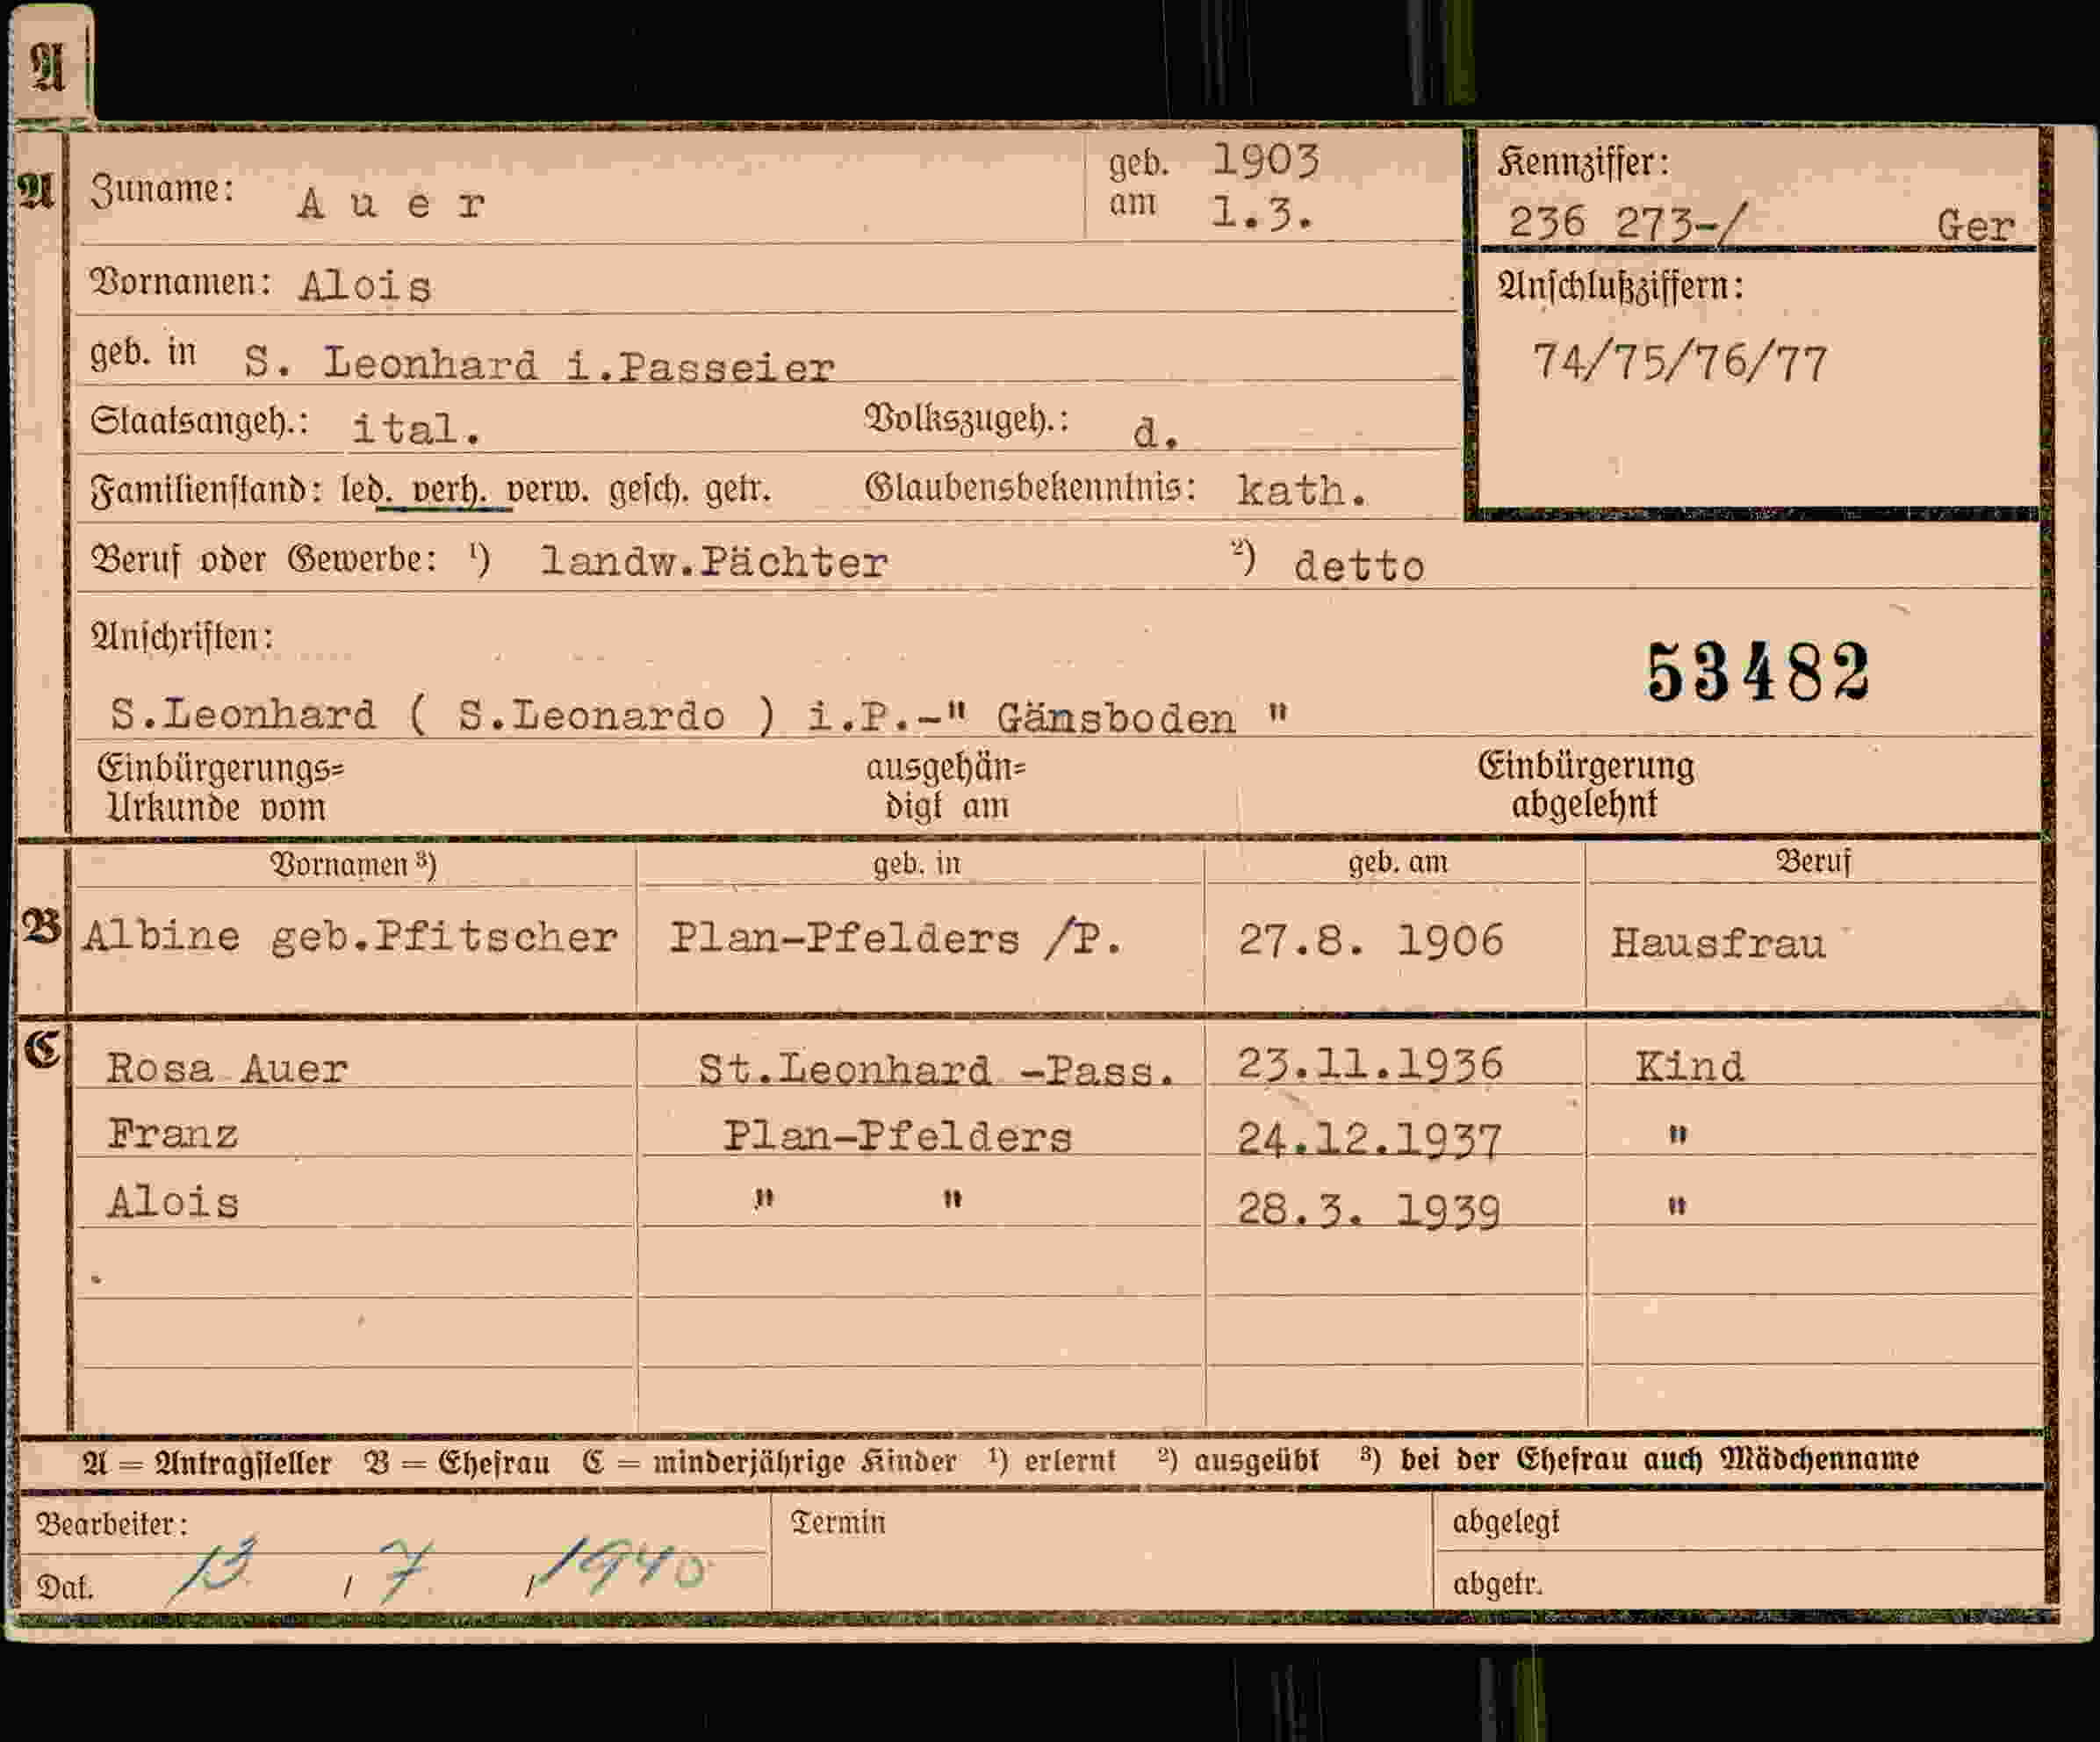 A
A Zuname: A u e r geb. am 1903 1.3. Kennziffer:
236 273-/ Ger
Vornamen: Alois Anschlußziffern:
geb. in S. Leonhard i.Passeier 74/75/76/77
Staatsangeh.: ital. Volkszugeh.: d.
Familienstand: led. verh. verw. gesch. getr. Glaubensbekenntnis: kath.
Beruf oder Gewerbe: ¹) landw.Pächter ²) detto
Anschriften:
53482
S.Leonhard ( S.Leonardo ) i.P.-" Gänsboden "
Einbürgerungs= ausgehän= Einbürgerung
Urkunde vom digt am abgelehnt
Vornamen ³) geb. in geb. am Beruf
B Albine geb.Pfitscher Plan-Pfelders /P. 27.8. 1906 Hausfrau
C Rosa Auer St.Leonhard -Pass. 23.11.1936 Kind
Franz Plan-Pfelders 24.12.1937 "
Alois " " 28.3. 1939 "
A = Antragsteller B = Ehefrau C = minderjährige Kinder ¹) erlernt ²) ausgeübt ³) bei der Ehefrau auch Mädchenname
Bearbeiter: Termin abgelegt
Dat. 13 / 7 / 1940 abgetr.